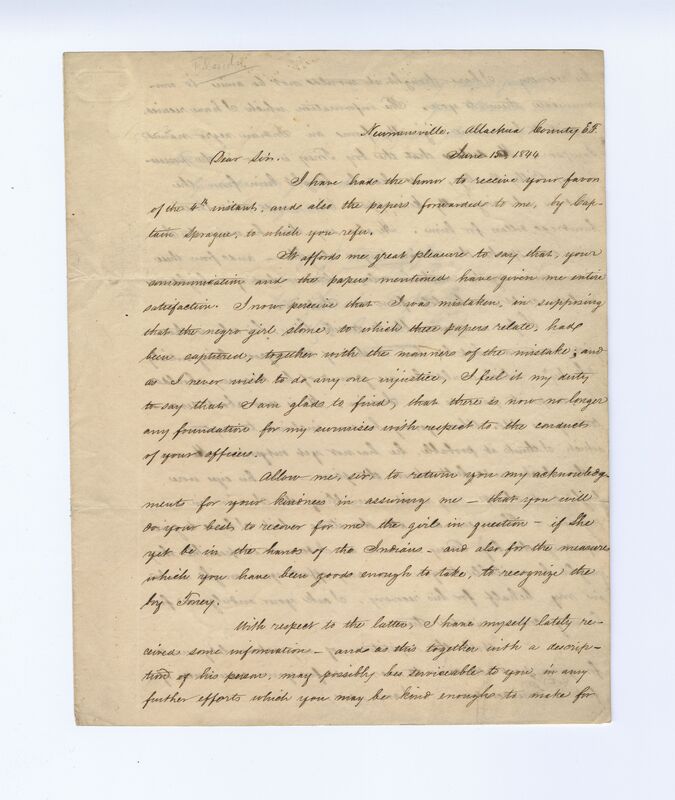 Newnansville. Allachua County E.F.
June 15th 1844
Dear Sir.
I have had the honor to receive your favor
of the 4th instant, and also the papers forwarded to me, by Cap-
tain Sprague, to which you refer.
It affords me great pleasure to say that, your
communication and the papers mentioned have given me entire
satisfaction. I now perceive that I was mistaken, in supposing
that the negro girl alone, to which these papers relate, had
been captured, together with the manners of the mistake; and
as I never wish to do any one injustice, I feel it my duty
to say that I am glad to find, that there is now no longer
any foundation for my surmises with respect to the conduct
of your officers.
Allow me, sir, to return you my acknowledg-
ments for your kindness in assuring me – that you will
do your best, to recover for me the girl in question – if she
yet be in the hands of the Indians – and also for the measure
which you have been good enough to take, to recognize the
boy Toney.
With respect to the latter, I have myself lately re-
ceived some information – and as this together with a descrip-
tion of his person, may possibly be serviceable to you in any
further efforts which you may be kind enough to make for